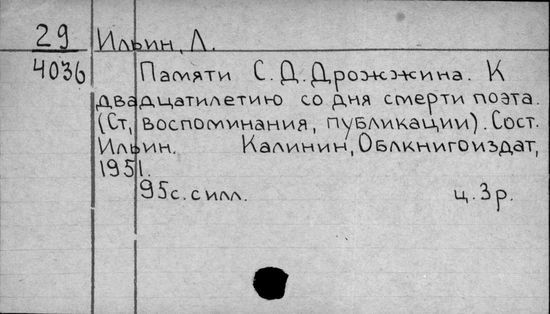 29 Ильин, Л.
4036 Памяти С.Д.Дрожжина. К
двадцатилетию со дня смерти поэта.
(Ст, воспоминания, публикации). Сост.
Ильин. Калинин, Облкнигоиздат,
1951.
95с. с илл. ц. 3 р.